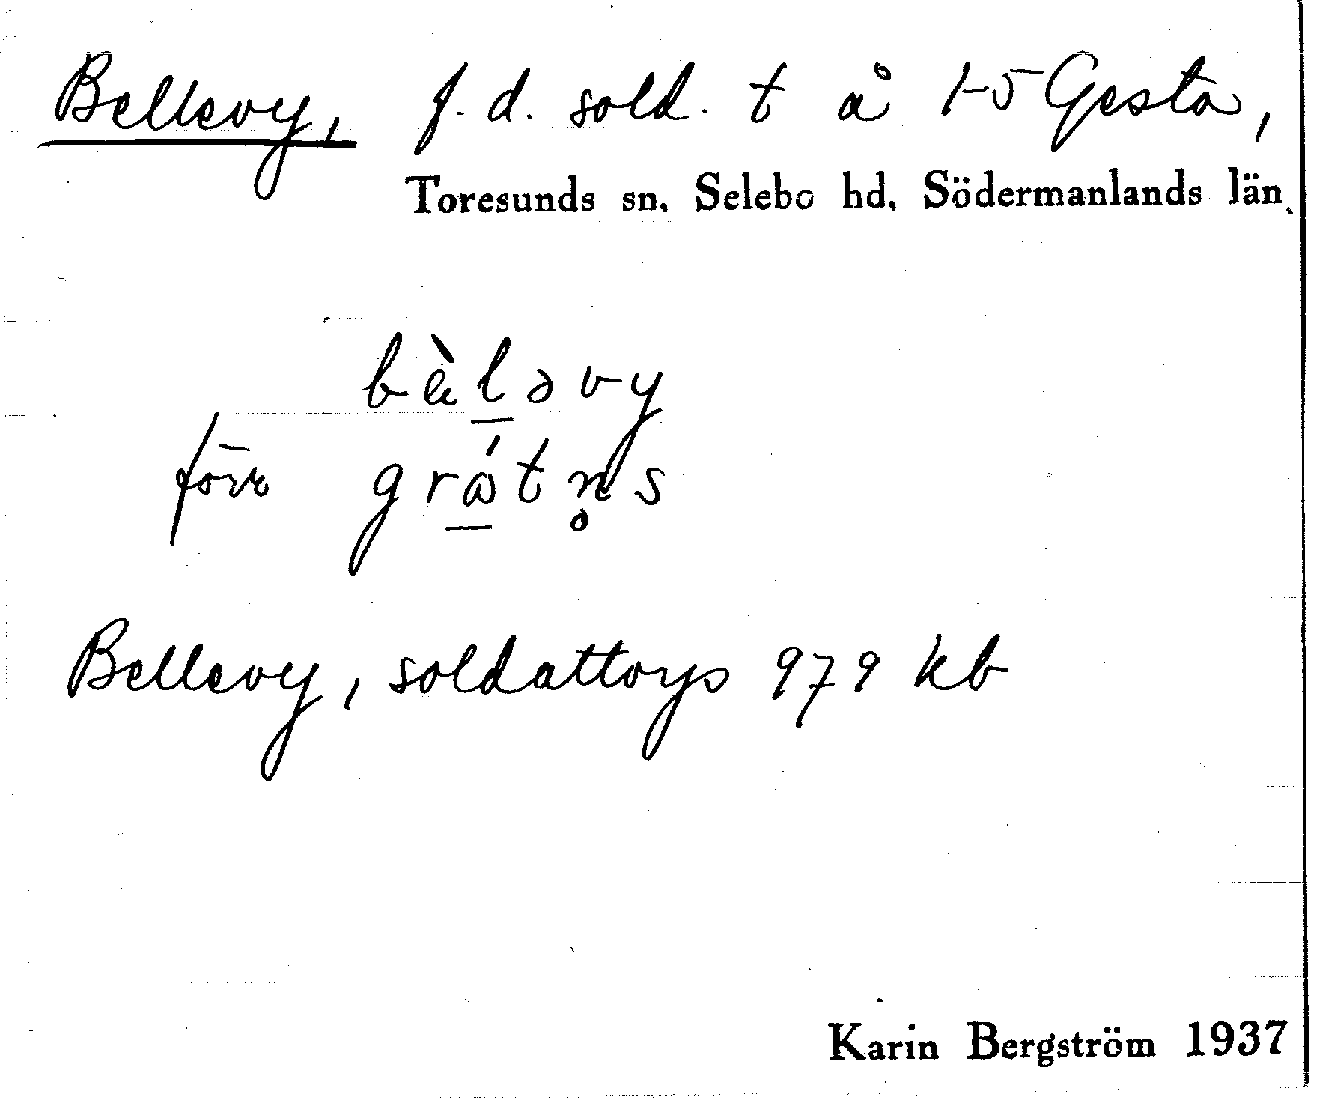 Bellevy, f. d. sold. t å 1-5 Gesta,
Toresunds sn. Selebo hd. Södermanlands län
bὰl̲əvy
förr grǻ̲tn̥s
Bellevy, soldattorp 979 kb
Karin Bergström 1937